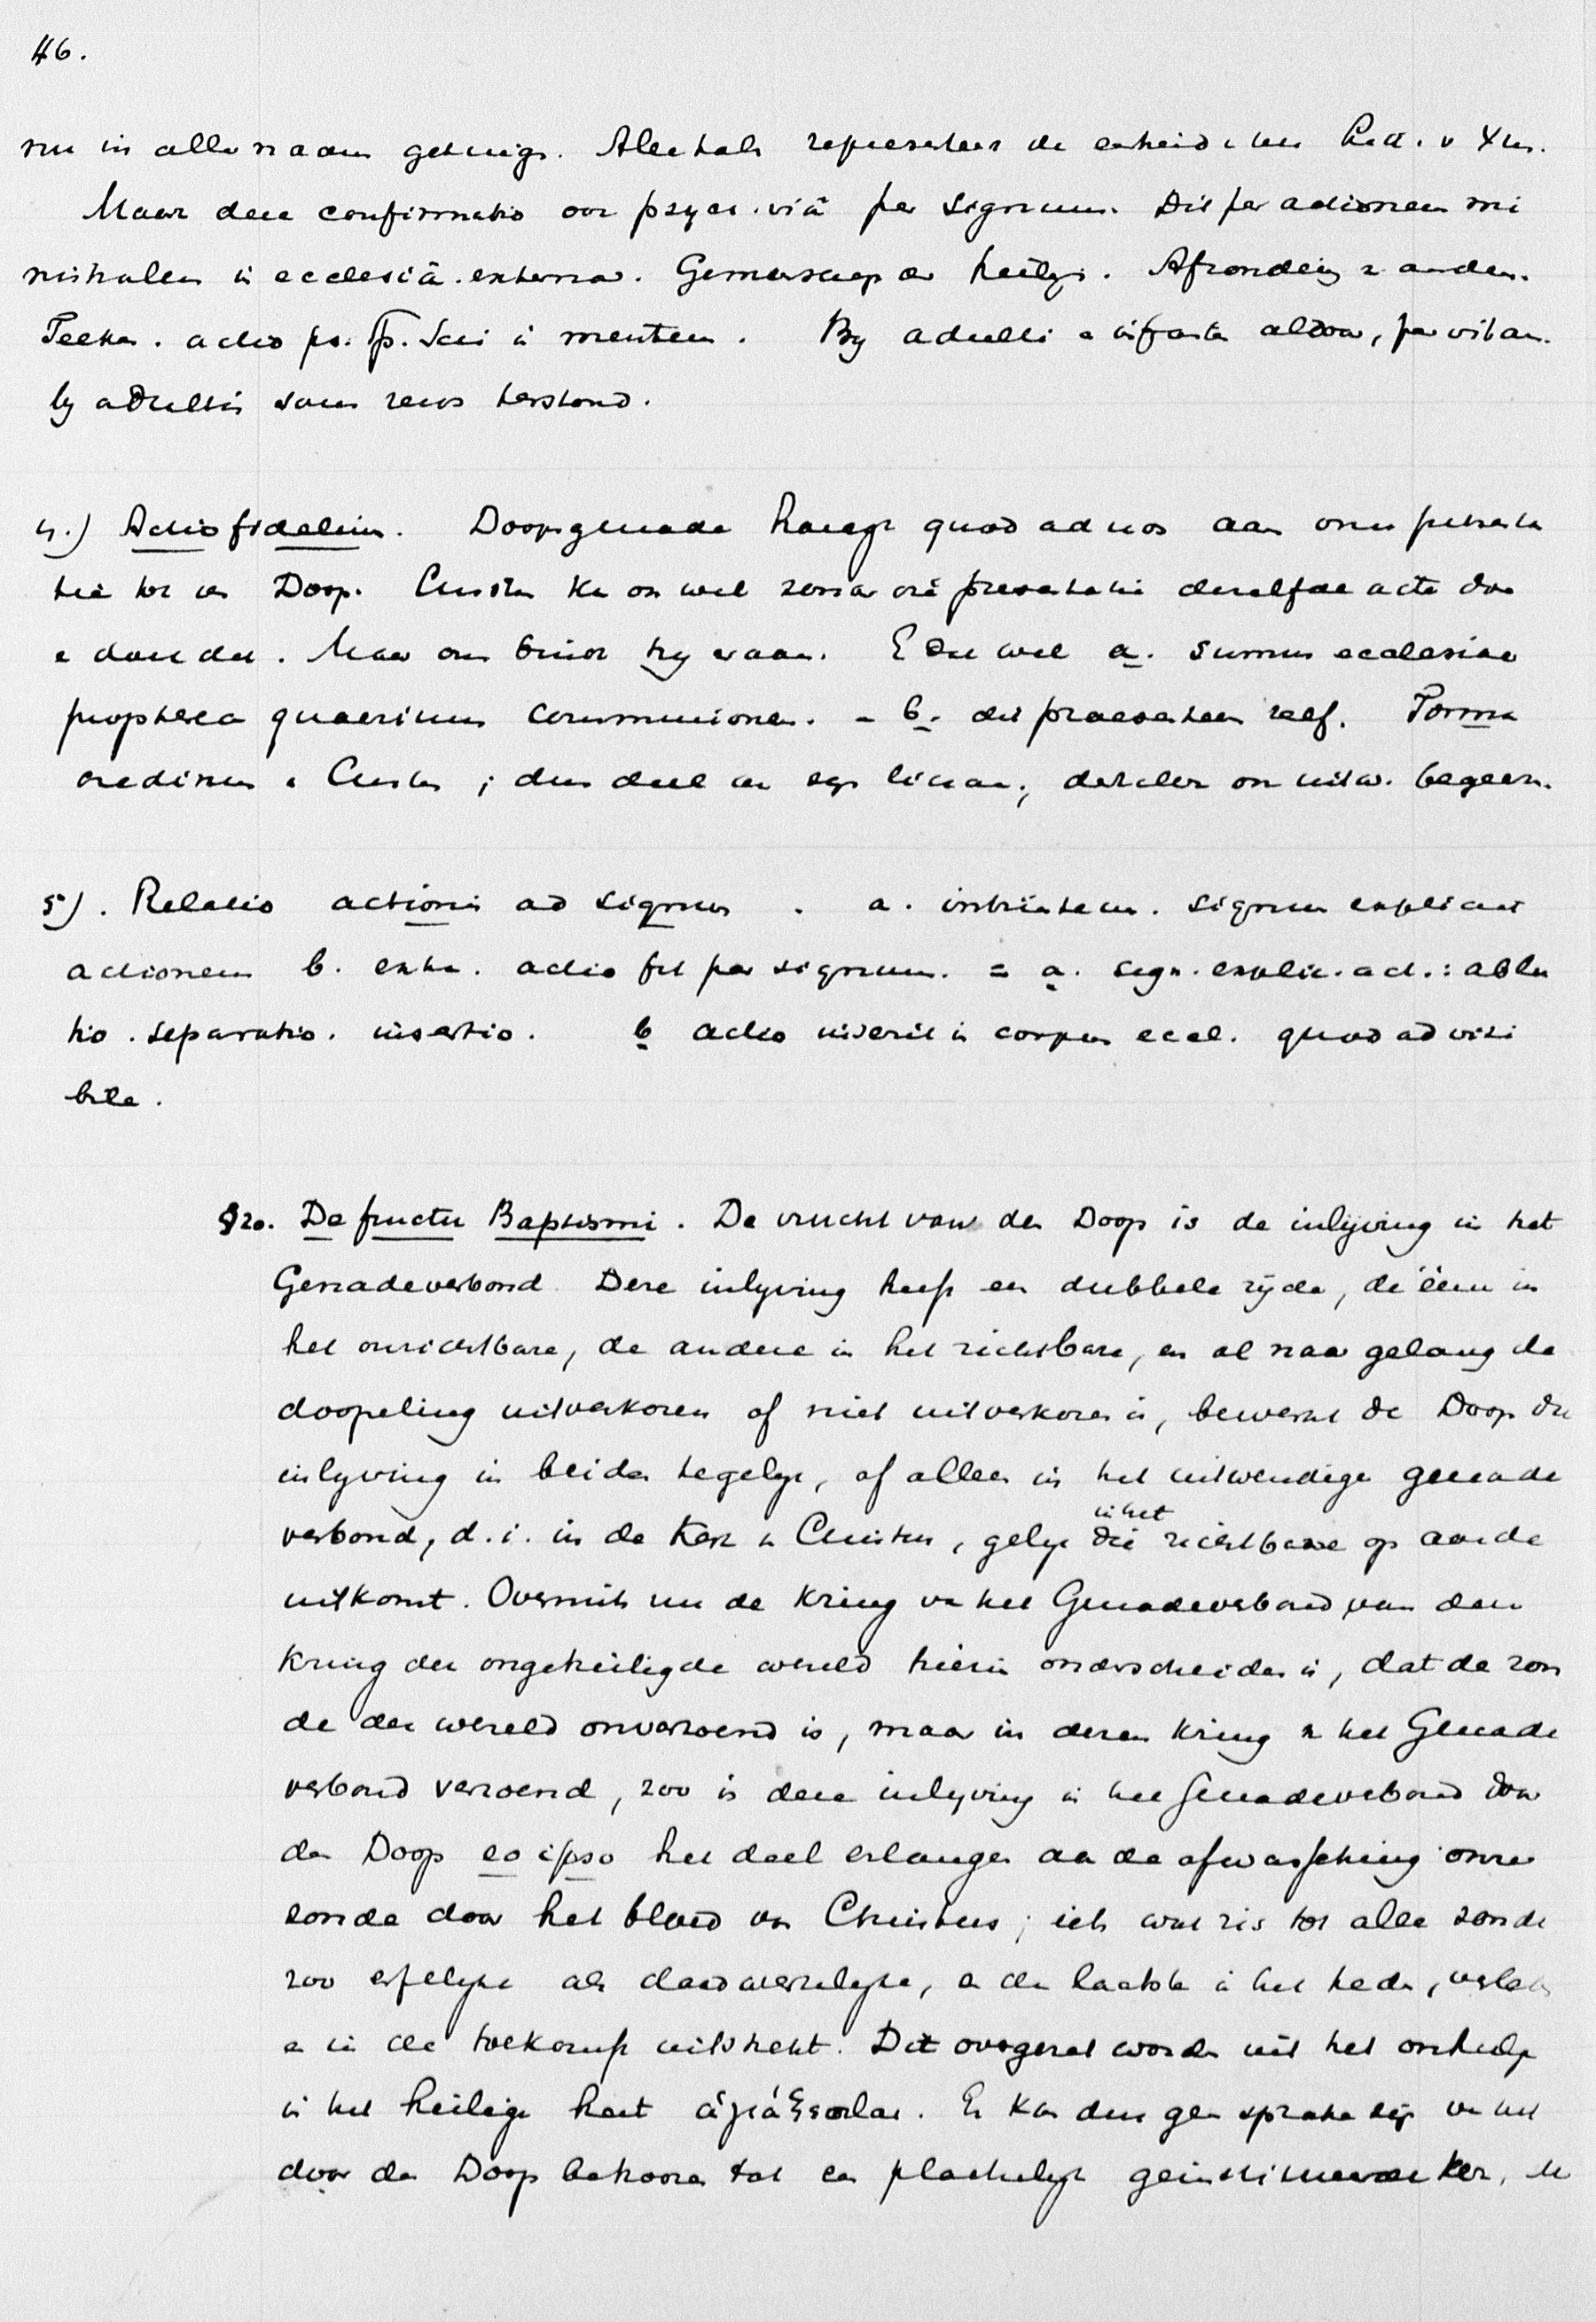 46.
nu in aller naam getuigt. Alentals representeert de eenheid
Maar deze confirmatio per signum. Dit per actionem mi
nisterialem in ecclesiâ externa. Gemeenschap der heilige. Afronding
actio in mentem. By adulti
by adultis
4.) Actio fidelium. Doopsgenade hangt quoad ad nos aan onze presenta
tie tot den Doop. Christus kan ons wel zonder presentatie dezelfde acte doen
Maar ons bindt hy eraan. En dat wel a. sumus ecclesiae
propterea quaerimus communionem. - b. dit praesenteeren zelf. Forma
credimus in Christus; dus deel aan zijn lichaam;
5). Relatio actionis ad signum. a. intrinsecum. signum explicat
actionem b. extr. actio fit per signum. = a. sign. explic. act.: ablu
tio. separatio. insertio. b actio inserit in corpus eccl. quoad visi
bile.
§20. De fructu Baptismi. De vrucht van den Doop is de inlijving in het
Genadeverbond. Deze inlyving heeft een dubbele zijde, de ééne in
het onzichtbare, de andere in het zichtbare, en al naar gelang de
doopeling uitverkoren of niet uitverkoren is, bewerkt de Doop die
inlyving in beide tegelyk, of alleen in het uitwendige genade
verbond, d.i. in de Kerk v Christus, gelyk die in het zichtbare op aarde
uitkomt. Overmits nu de kring van het Genadeverbond van den
kring der ongeheiligde wereld hierin onderscheiden is, dat de zon
de der wereld onverzoend is, maar in dezen kring v het Genade
verbond verzoend, zoo is deze inlyving in het Genadeverbond door
den Doop eo ipso het deel erlangen aan de afwassching onzer
zonde door het bloed van Christus; iets wat zich tot alle zonde
zoo erfelyke als daadwerkelyke, en deze laatste in het heden, verleden
en in de toekomst uitstrekt. Dit overgezet worden uit het onheilige
in het heilige heet ἁγιάζεσθαι. Er kan dus geen sprake zijn van het
door den Doop behooren tot een plaatselyk geinstitueerde kerk,